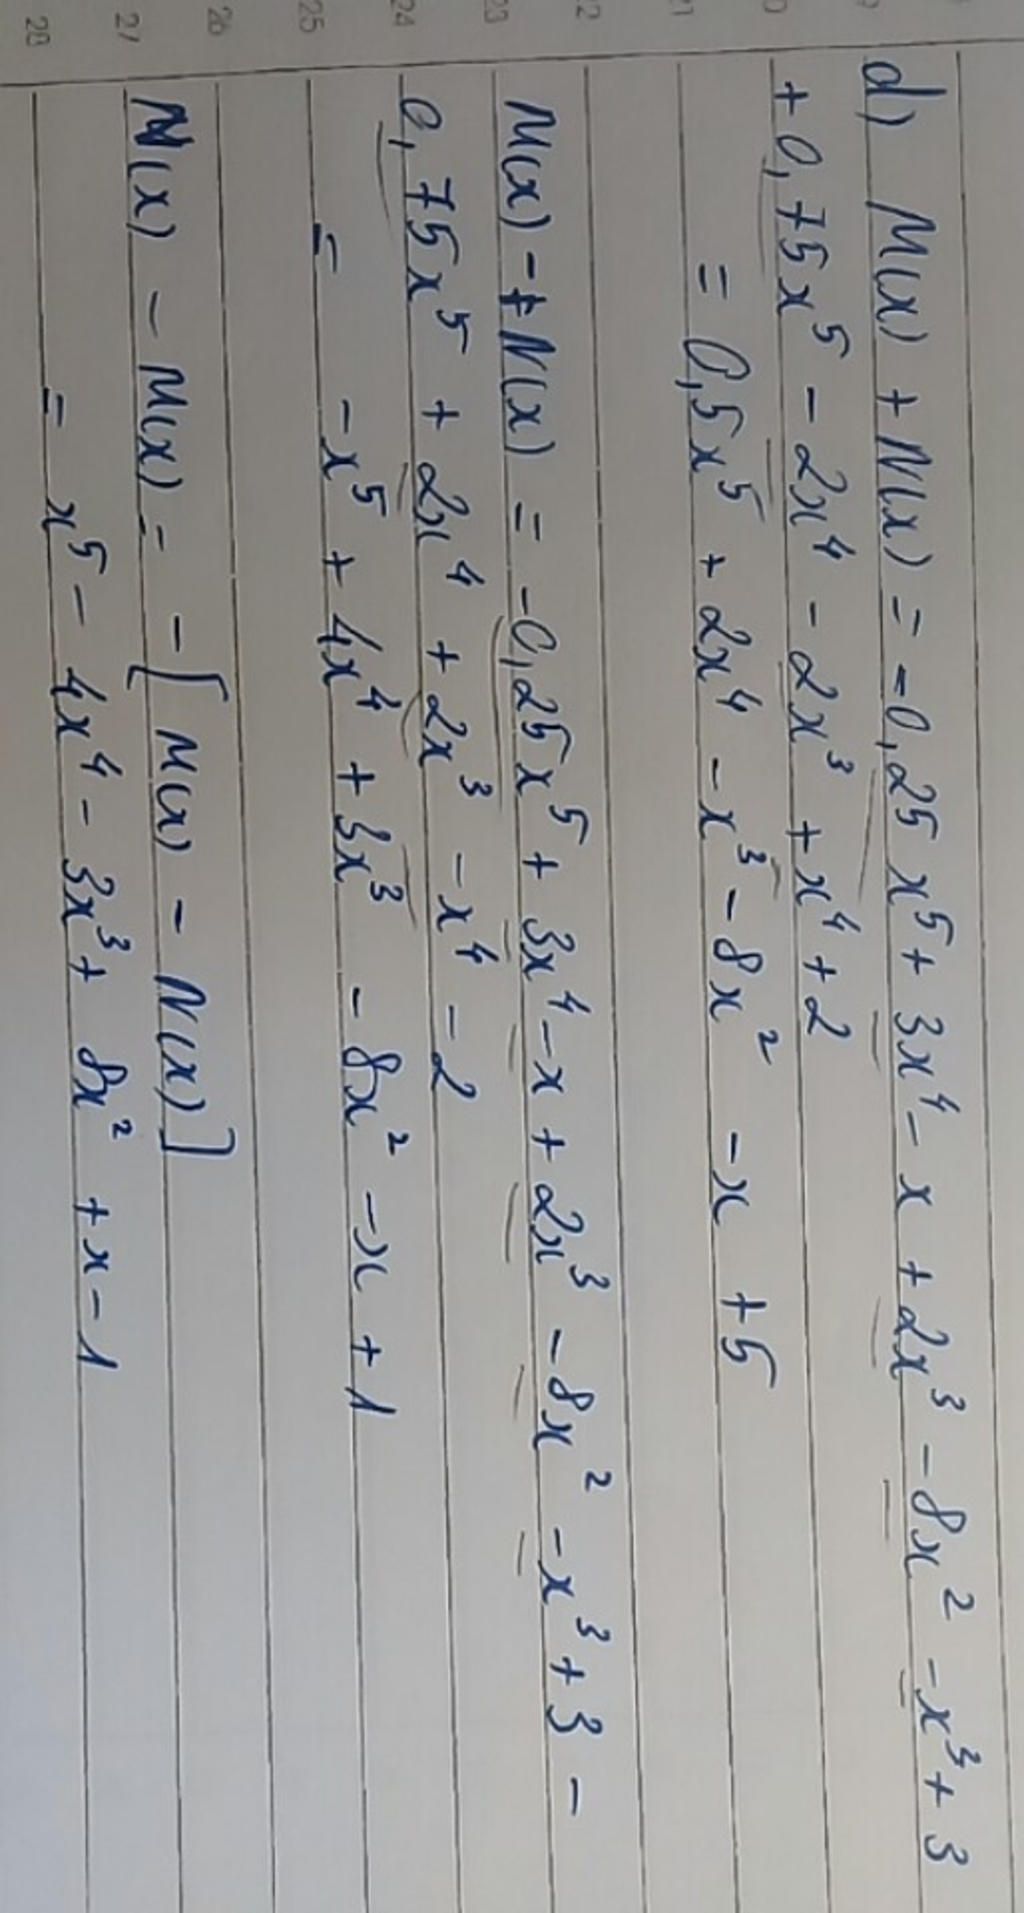 d) M(x) + N(x) = -0,25x⁵ + 3x⁴ - x + 2x³ - 8x² - x³ + 3
+ 0,75x⁵ - 2x⁴ - 2x³ + x⁴ + 2
= 0,5x⁵ + 2x⁴ - x³ - 8x² - x + 5
M(x) - N(x) = -0,25x⁵ + 3x⁴ - x + 2x³ - 8x² - x³ + 3 -
0,75x⁵ + 2x⁴ + 2x³ - x⁴ - 2
= -x⁵ + 4x⁴ + 3x³ - 8x² - x + 1
N(x) - M(x) = - [M(x) - N(x)]
= x⁵ - 4x⁴ - 3x³ + 8x² + x - 1
21
22
23
24
25
26
27
28